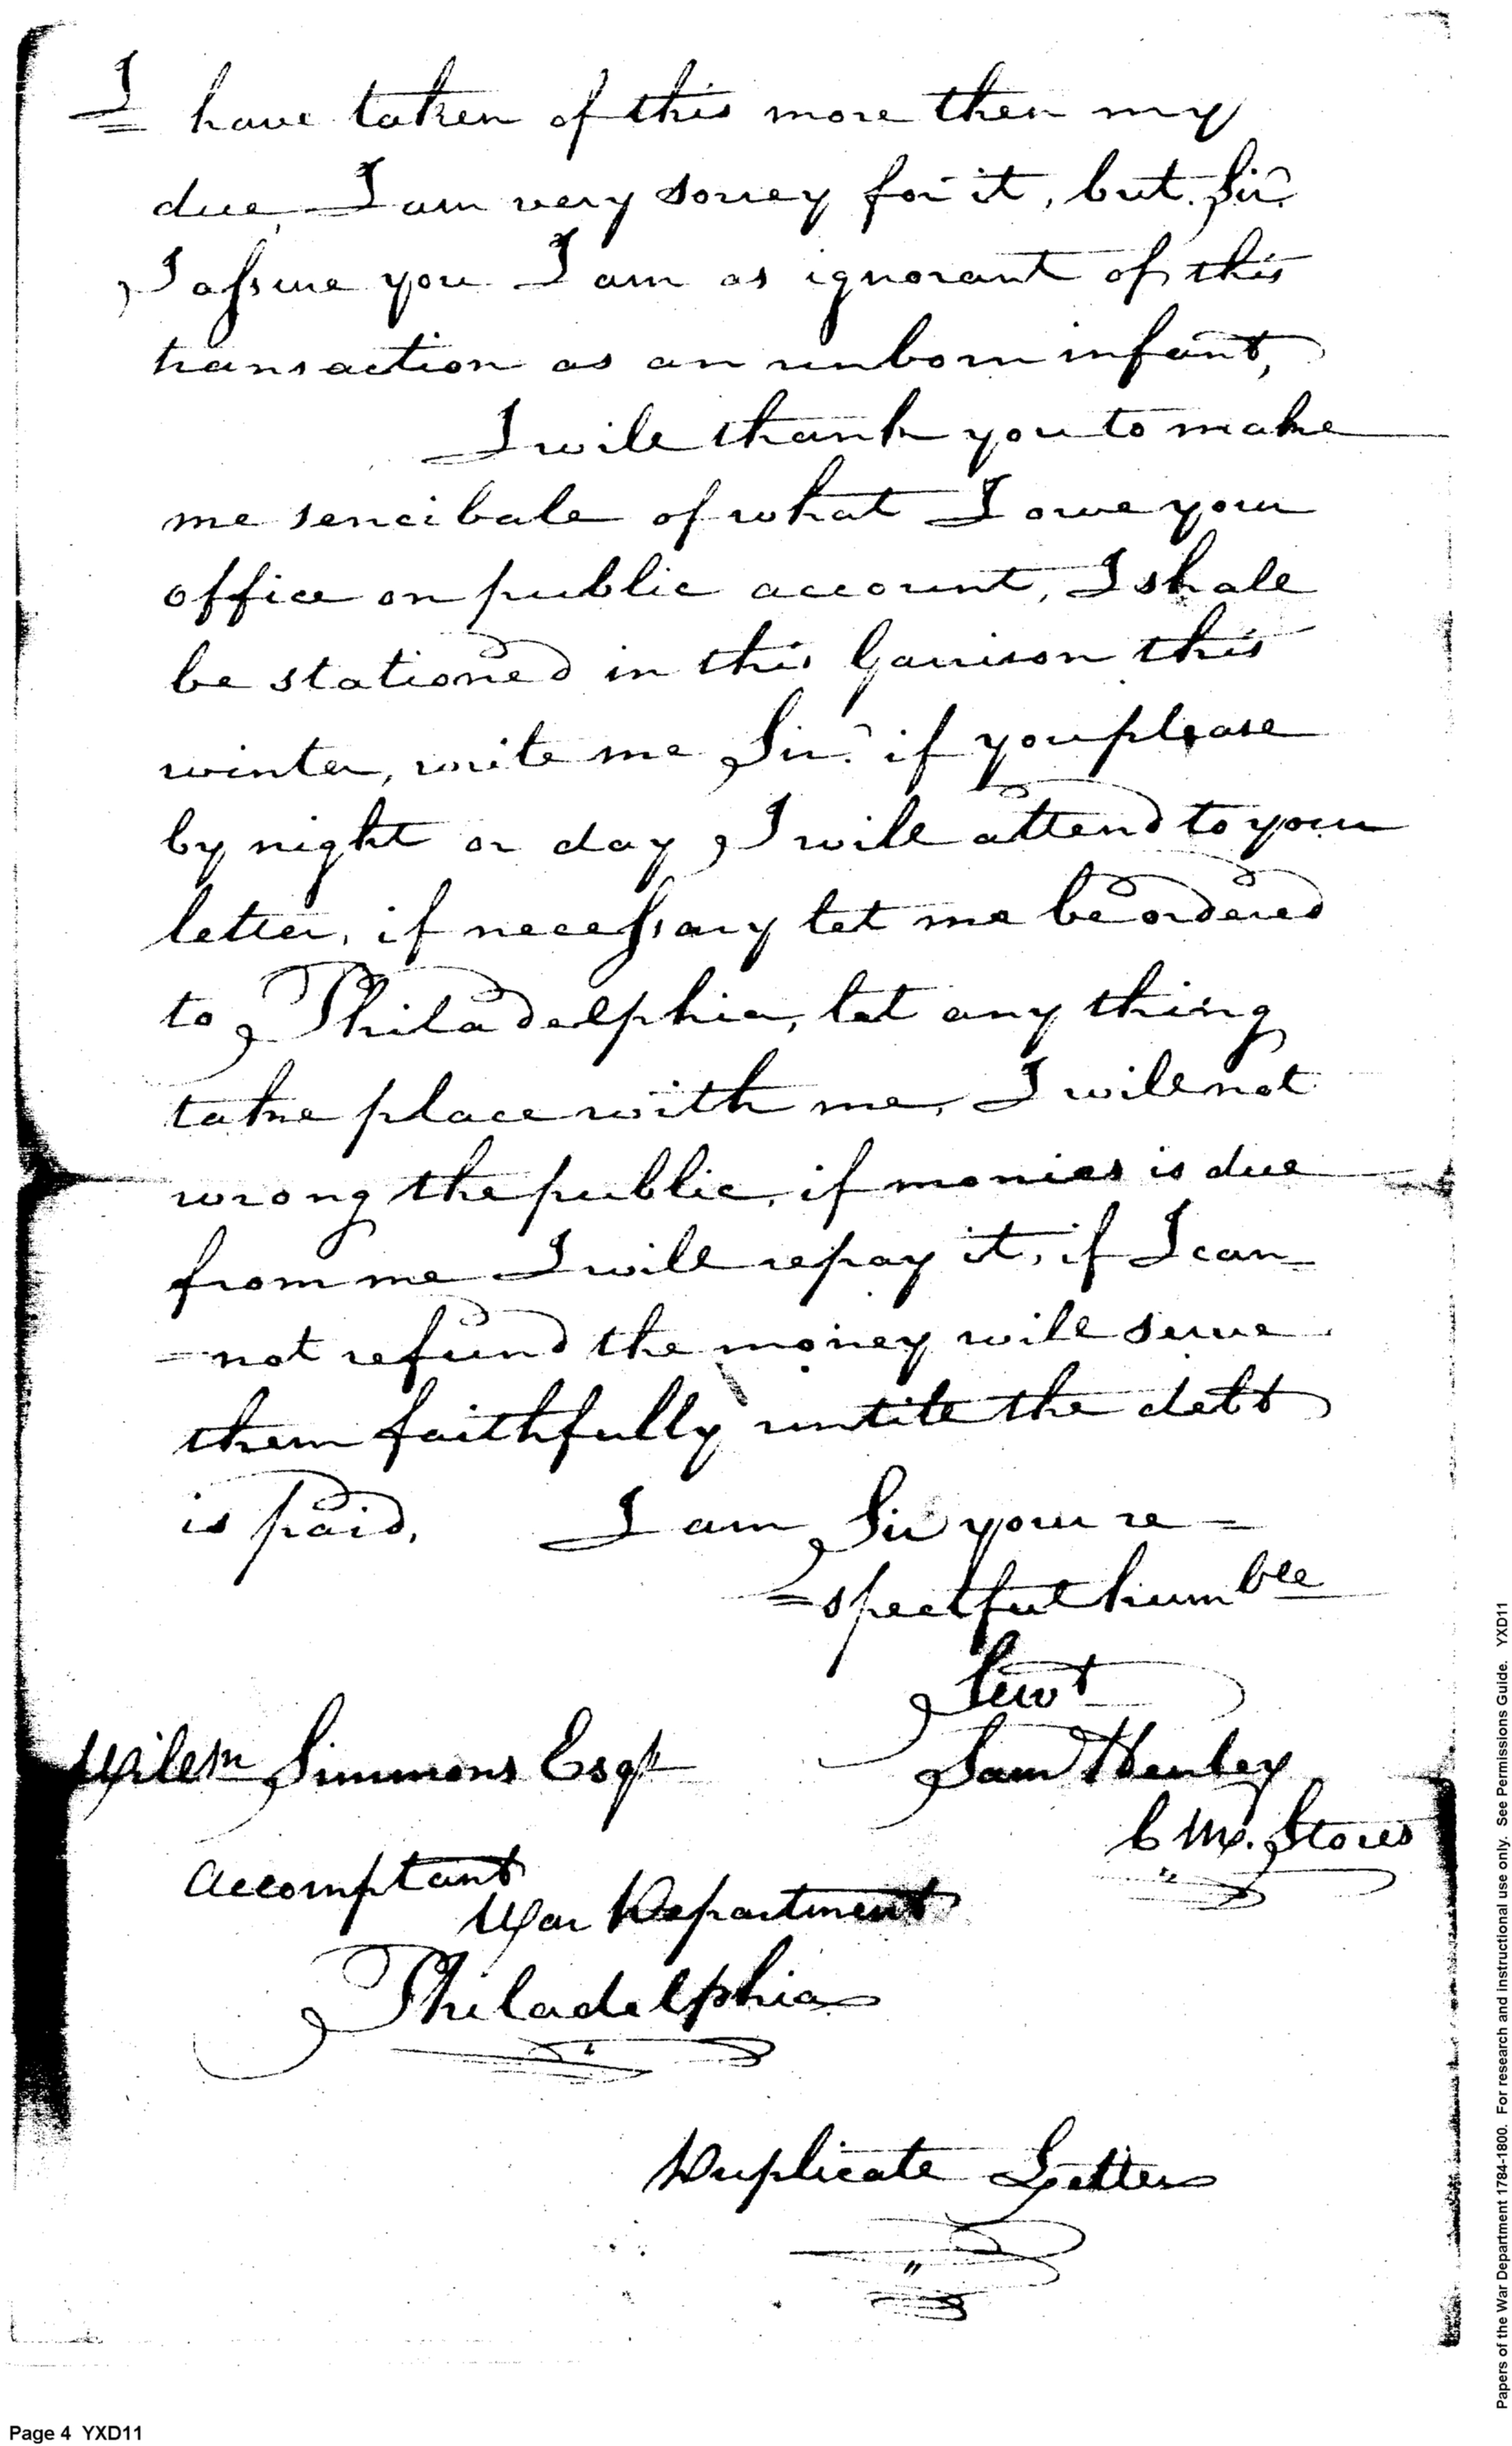 I have taken of this more then my
due, I am very sorrey for it, but. Sir.
I assure you I am as ignorant of this
transaction as an unborn infant,
I will thank you to make
me sencibale of what I owe your
office on public account, I shall
be stationed in this Garrison this
winter, write me Sir. if you please
by night or day, I will attend to your
letter, if necessary let me be ordered
to Philadelphia, let any thing
take place with me, I will not
wrong the public, if monies is due
from me I will repay it, if I can=
=not refund the money will serve
them faithfully untill the debt
is paid. I am Sir your re=
=spectful humble
Servt
Willm Simmons Esqr
Sam Henley
C M. Stores
Accomptant
War Department
Philadelphia
Duplicate Letter
Page 4 YXD11
Papers of the War Department 1784-1800. For research and instructional use only. See Permissions Guide. YXD11